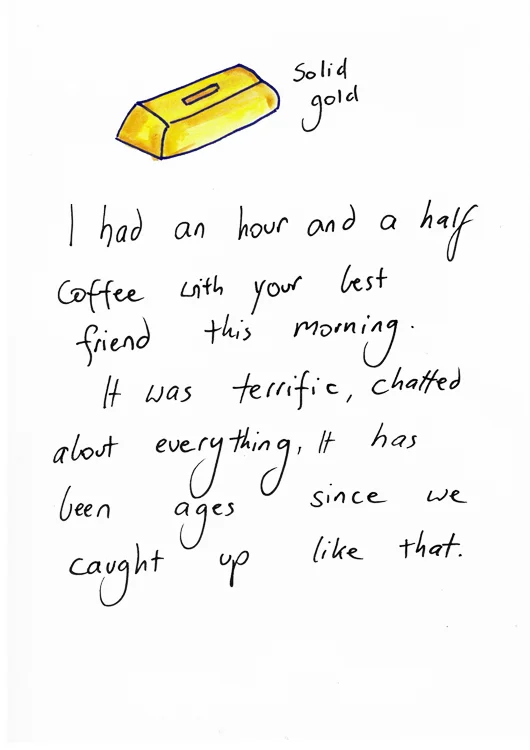 Solid
gold
I had an hour and a half
Coffee with your best
friend this morning.
It was terrific, chatted
about everything, It has
been ages since we
caught up like that.